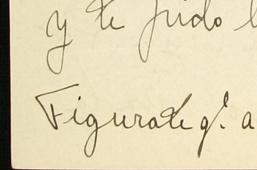 y te pido l
Figurate q.e a